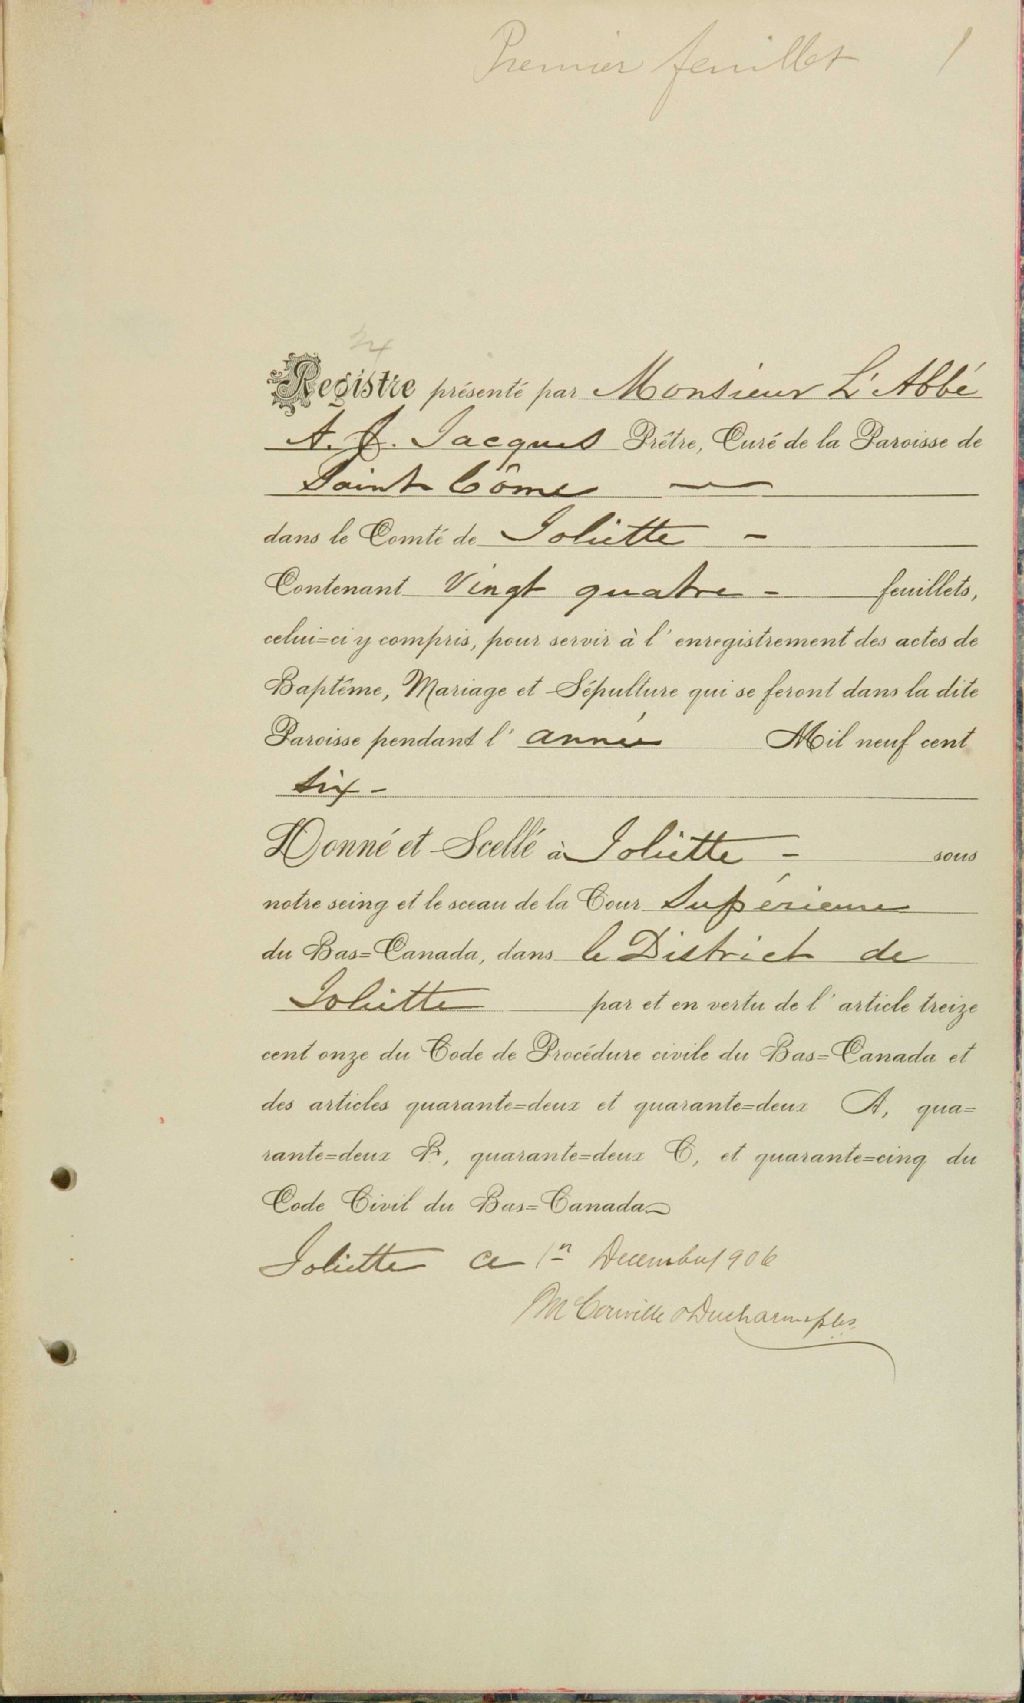 Premier feuillet 1
24
Registre présenté par Monsieur L'Abbé
A. J. Jacques Prêtre, Curé de la Paroisse de
Saint Côme —
dans le Comté de Joliette -
Contenant Vingt quatre - feuillets,
celui=ci y compris, pour servir à l'enregistrement des actes de
Baptême, Mariage et Sépulture qui se feront dans la dite
Paroisse pendant l'année Mil neuf cent
six -
Donné et Scellé à Joliette - sous
notre seing et le sceau de la Cour Supérieure
du Bas=Canada, dans le District de
Joliette par et en vertu de l'article treize
cent onze du Code de Procédure civile du Bas=Canada et
des articles quarante=deux et quarante=deux A, qua=
rante=deux B, quarante=deux C, et quarante=cinq du
Code Civil du Bas=Canada
Joliette ce 1er Decembre 1906
Courville & Ducharme